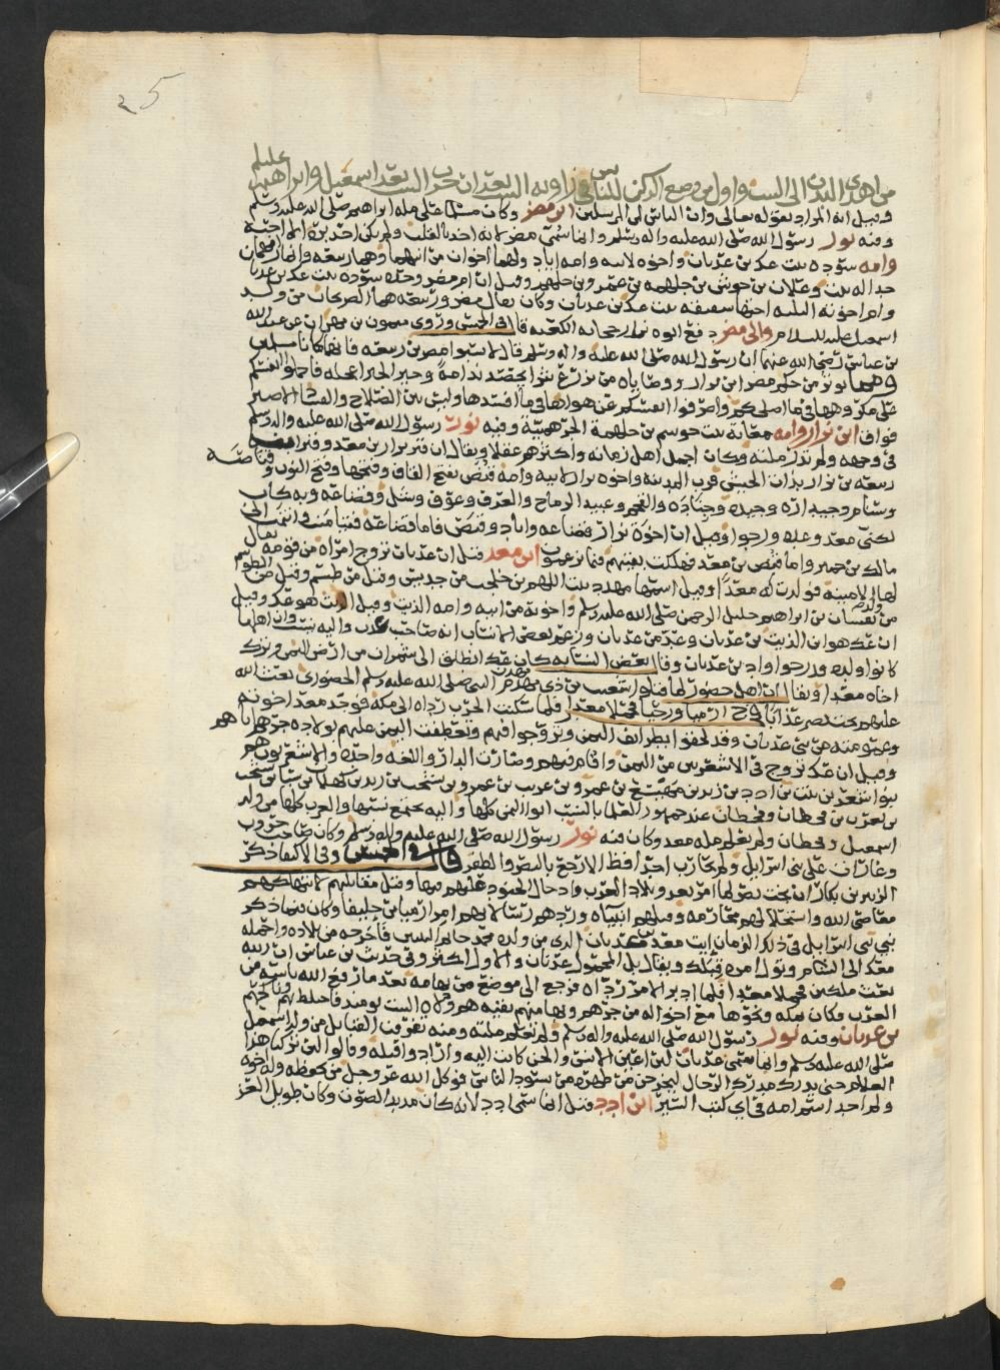 25
من اهدى البدن الى البيت واول من وضع الركن للناس في زاوية البيت بعد ان خرب البيت بعد اسمعيل وابراهيم عليهم
وقيل انه المراد بقوله تعالى وان الياس لمن المرسلين ابن مضر وكان مسلما على ملة ابراهيم صلى الله عليه وسلم
وفيه نور رسول الله صلى الله عليه واله وسلم وانما سمي مضر لانه اخذ بالقلب ولم يكن احد يره الا احبه
وامه سوده بنت عك بن عدنان واخوه لابيه وامه اياد ولهما اخوان من ابيهما وهما ربيعه وانمار امهما
حداله بنت وعلان بن جوش بن جلهمه بن عمرو بن جلهم وقيل ان ام مضر وحده سوده بنت عك بن عدنان
وام اخوته الثلثه اختها شقيقه بنت عك بن عدنان وكان يقال مضر وربيعه هما الصريحان من ولد
اسمعيل عليه السلام والى مضر دفع ابوه نزار حجابة الكعبه قال في الخميس وروى ميمون بن مهران عن عبد الله
بن عباس رضي الله عنهما ان رسول الله صلى الله عليه واله وسلم قال لا تسبوا مضر بن ربيعه فانهما كانا مسلمين
ومما يؤثر من حكم مضر ابن نزار ووصاياه من يزرع شرا يحصد ندامة وخير الخير اعجله فاحملوا انفسكم
على مكروهها في ما اصلحكم واصرفوا انفسكم عن هواها في ما افسدها وليس بين الصلاح والفساد الا صبر
فواق ابن نزار وامه معانة بنت جوسم بن جلهمة الجرهمية وفيه نور رسول الله صلى الله عليه واله وسلم
في وجهه ولم تزل ملته وكان اجمل اهل زمانه واكثرهم عقلا ويقال ان قبر نزار بن معد وقبر ابنه
ربيعه بن نزار بذات الجيش قرب المدينه واخوه نزار لابيه وامه قنص بفتح القاف وفتحها وفتح النون وقناصة
وسنام وحيدان وحيده وجناده والقحم وعبيد الرماح والعرف وعوف وشك وقضاعه وبه كان
يكنى معد وعده ورجوا وقيل ان اخوة نزار قضاعه واياد وقنص فاما قضاعة فتيامنت وانتمت الى
مالك بن حمير واما قنص بن معد فهلكت بقيتهم فيما يزعمون ابن معد قيل ان عدنان تزوج امراه من قومه يقال
لها الامينه فولدت له معدا وقيل اسمها مهدد بنت اللهم بن جلحب من جديس وقيل من طسم وقيل من الطوسم
من يقسان بن ابراهيم خليل الرحمن صلى الله عليه وسلم واخوته من ابيه وامه الذيب وقيل الذيب هو عك وقيل
ان عك هو ابن الذيب بن عدنان وعدن بن عدنان وزعم بعض الانساب انه صاحب عدن واليه نسبت وان اهلها
كانوا ولده ودرجوا واد بن عدنان وقال بعض النسابه كان عك انطلق الى سمران من ارض اليمن وترك
اخاه معدا ويقال ان اهل حضور لما قتلوا شعيب بن ذي مهدم النبي صلى الله عليه وسلم الحضوري بعث الله
عليهم بخت نصر عذابا فخرج ارميا وبرخيا فحملا معدا فلما سكنت الحرب رداه الى مكة فوجد معد اخوته
وعمومته من بني عدنان وقد لحقوا بطوايف اليمن وتزوجوا فيهم وتعطفت اليمن عليهم بولادة جرهم اياهم
وقيل ان عك تزوج في الاشعريين من اليمن واقام فيهم وصارت الدار واللغه واحده والاشعريون هم
بنوا اشعر بن نبت بن ادد بن زيد بن هميسع بن عمرو بن عريب بن عمرو بن يشجب بن زيد بن كهلان بن سبا بن يشجب
بن يعرب بن قحطان وقحطان عند جمهور العلما بالنسب ابوا اليمن كلها واليه يجتمع نسبها والعرب كلها من ولد
اسمعيل وقحطان ولم تغلم ملة معد وكان فيه نور رسول الله صلى الله عليه واله وسلم وكان صاحب حروب
وغارات على بني اسراييل ولم يحارب احدا قط الا رجع بالنصر والظفر قال في الخميس وفي الاكتفا ذكر
الزبير بن بكار ان بخت نصر لما امر بغزو بلاد العرب وادخال الجنود عليهم فيها وقتل مقاتليهم لانتهاكهم
معاصي الله واستحلالهم محارمه وقتلهم انبياه وردهم رسالاتهم امر ارميا بن حلقيا وكان فيما ذكر
نبي بني اسراييل في ذلك الزمان ايت معد بن عدنان الذي من ولده محمد خاتم النبيين فاخرجه من بلاده واحمله
معك الى الشام وتول امره قبلك ويقال بل المحمول عدنان والاول اكثر وفي حديث بن عباس ان الله
بعث ملكين فحملا معدا فلما ادبر الامر رداه فرجع الى موضعه من تهامه بعد ما رفع الله باسه عن
العرب وكان بمكة ونحوها مع اخواله من جرهم وبها منهم بقيه هم ولاة البيت يومئذ فاختلط بهم وناكحهم
بن عدنان وفيه نور رسول الله صلى الله عليه واله وسلم ولم تغلم ملته ومنه تفرقت القبايل من ولد اسمعيل
صلى الله عليه وسلم وانما سمي عدنان لان اعين الانس والجن كانت اليه وارادوا قتله وقالوا لئن تركنا هذا
الغلام حتى يدرك مدرك الرجال ليخرجن من ظهره من يسود الناس فوكل الله عز وجل من يحفظه وله اخوه
ولم اجد اسم امه في اي كتب السير ابن ادد قيل انما سمي ادد لانه كان مديد الصوت وكان طويل العز